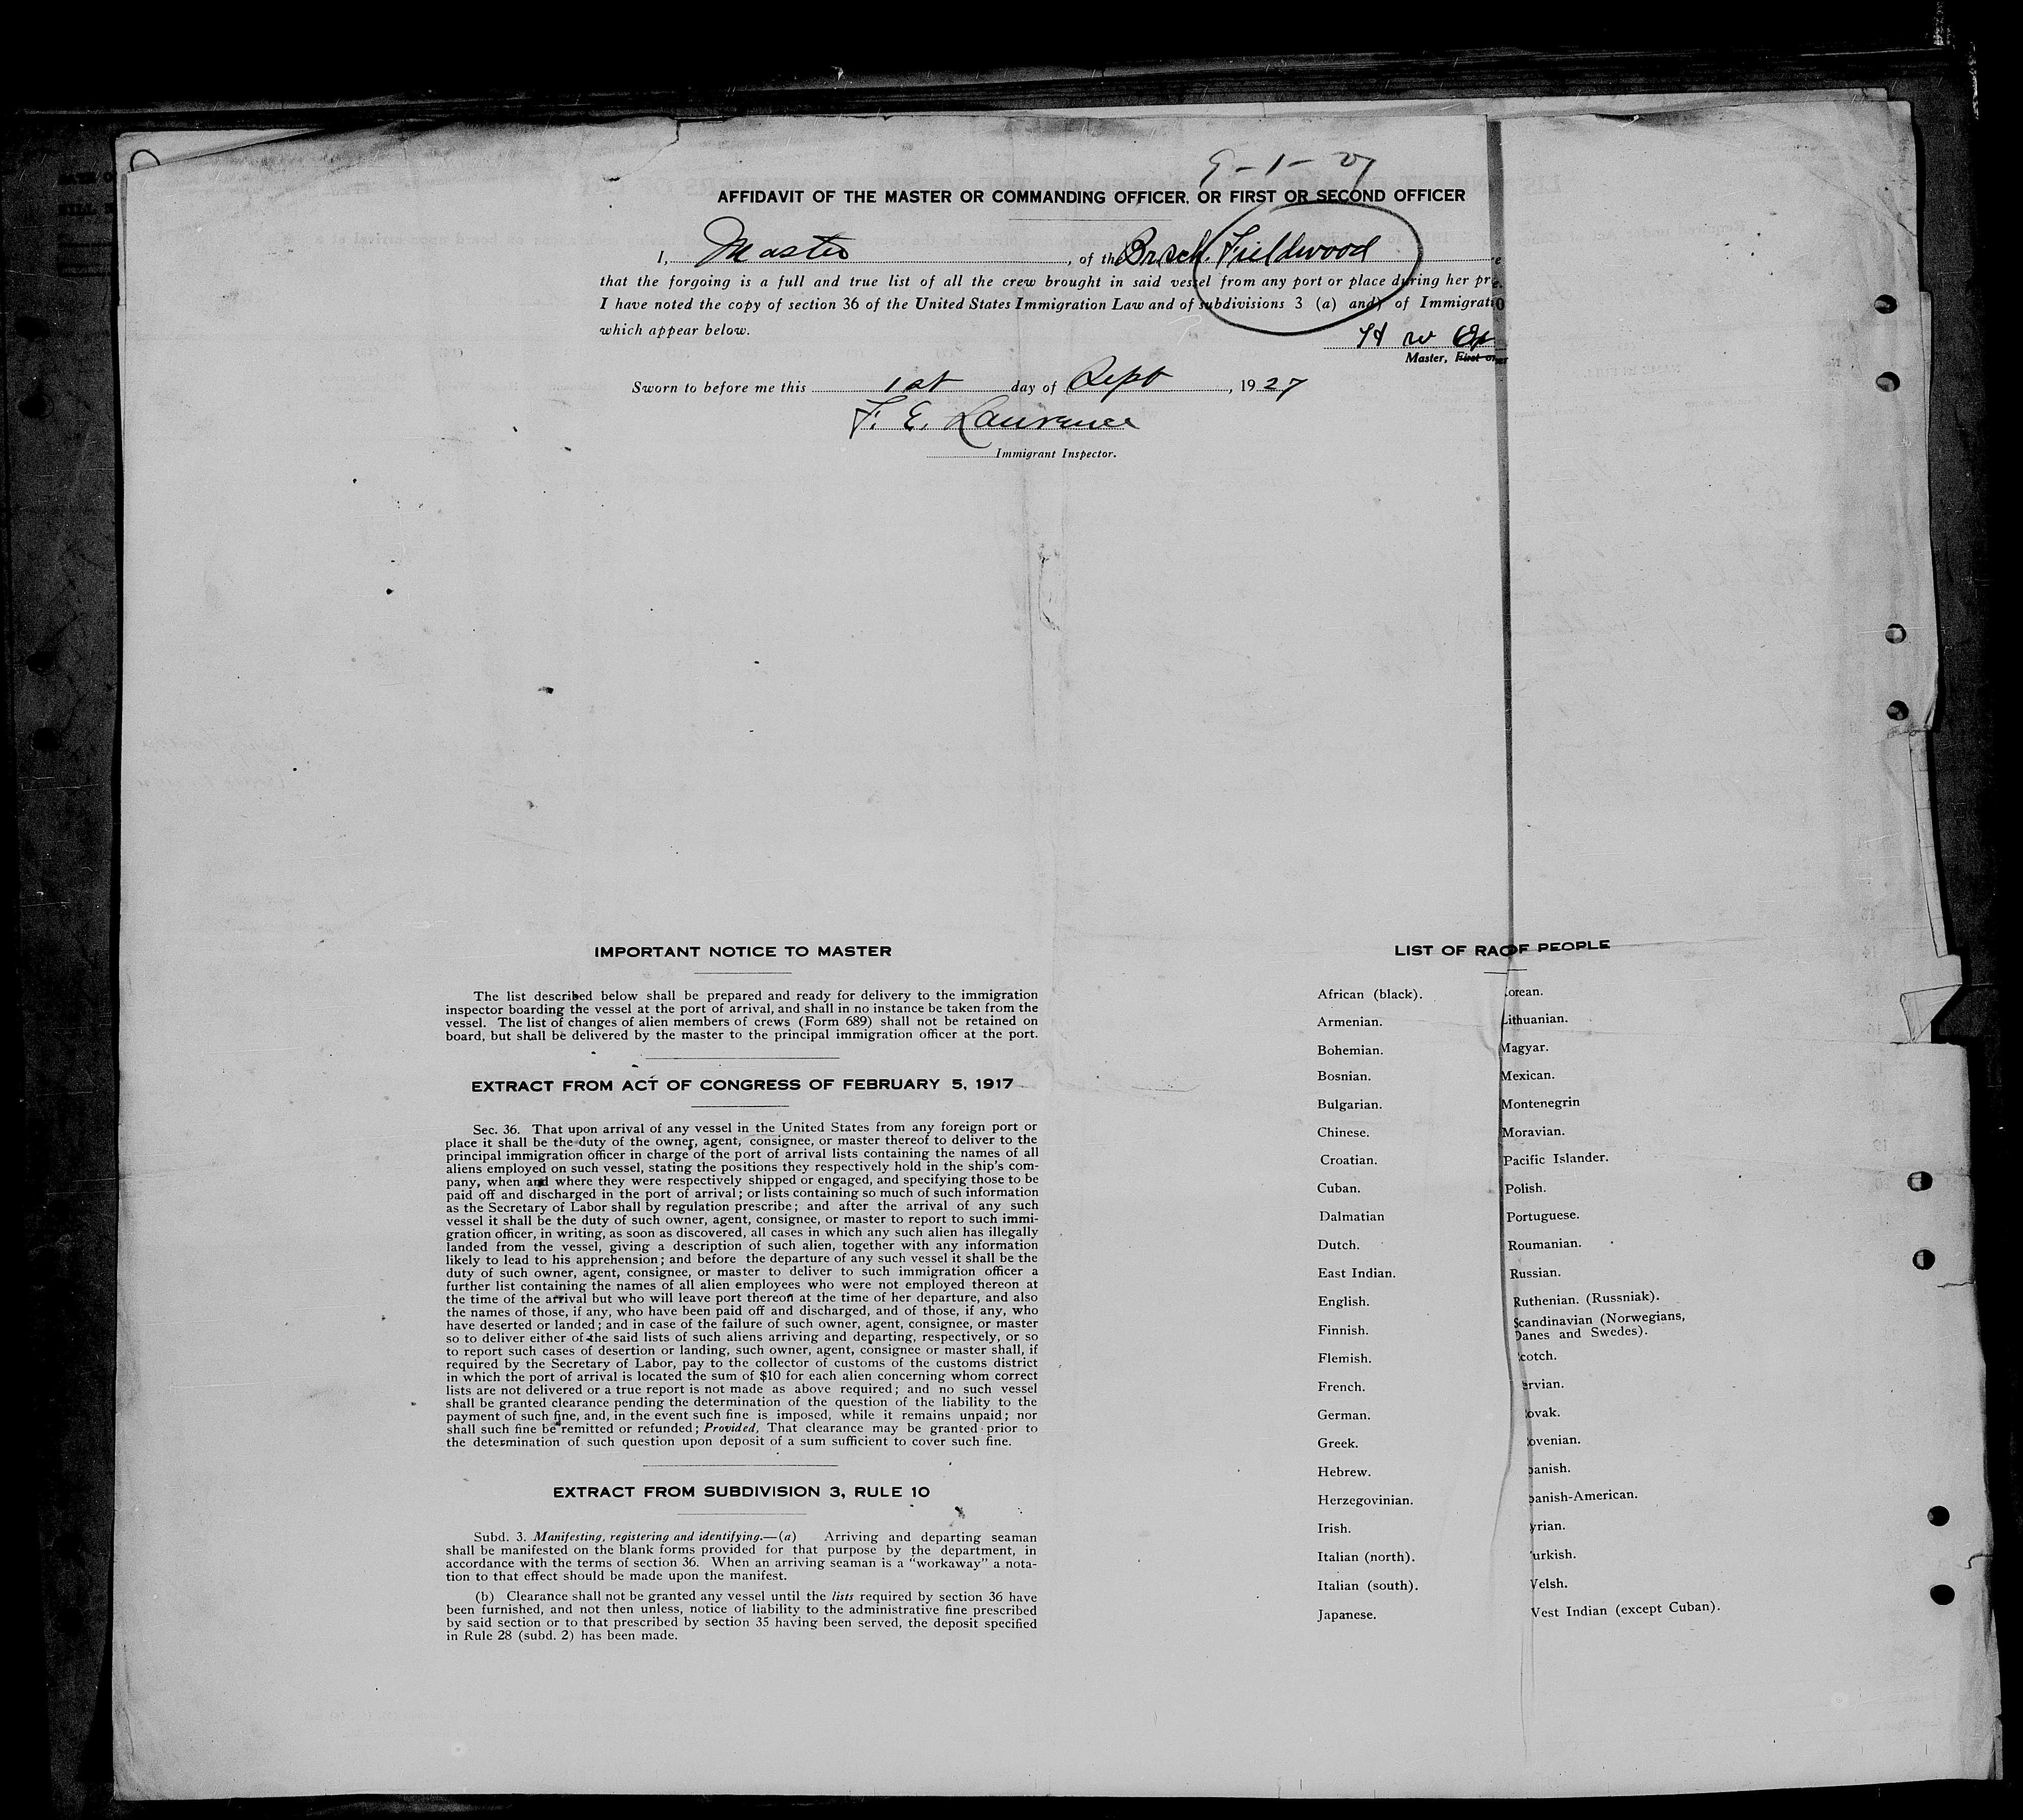 9-1-27
AFFIDAVIT OF THE MASTER OR COMMANDING OFFICER, OR FIRST OR SECOND OFFICER
I, Master, of the Br. sch. Fieldwood
that the forgoing is a full and true list of all the crew brought in said vessel from any port or place during her pr
I have noted the copy of section 36 of the United States Immigration Law and of subdivisions 3 (a) and of Immigrati
which appear below.
H W
Master, First or
Sworn to before me this 1st day of Sept, 1927
F. E. Lawrence
Immigrant Inspector.
IMPORTANT NOTICE TO MASTER
The list described below shall be prepared and ready for delivery to the immigration
inspector boarding the vessel at the port of arrival, and shall in no instance be taken from the
vessel. The list of changes of alien members of crews (Form 689) shall not be retained on
board, but shall be delivered by the master to the principal immigration officer at the port.
EXTRACT FROM ACT OF CONGRESS OF FEBRUARY 5, 1917
Sec. 36. That upon arrival of any vessel in the United States from any foreign port or
place it shall be the duty of the owner, agent, consignee, or master thereof to deliver to the
principal immigration officer in charge of the port of arrival lists containing the names of all
aliens employed on such vessel, stating the positions they respectively hold in the ship's com-
pany, when and where they were respectively shipped or engaged, and specifying those to be
paid off and discharged in the port of arrival; or lists containing so much of such information
as the Secretary of Labor shall by regulation prescribe; and after the arrival of any such
vessel it shall be the duty of such owner, agent, consignee, or master to report to such immi-
gration officer, in writing, as soon as discovered, all cases in which any such alien has illegally
landed from the vessel, giving a description of such alien, together with any information
likely to lead to his apprehension; and before the departure of any such vessel it shall be the
duty of such owner, agent, consignee, or master to deliver to such immigration officer a
further list containing the names of all alien employees who were not employed thereon at
the time of the arrival but who will leave port thereon at the time of her departure, and also
the names of those, if any, who have been paid off and discharged, and of those, if any, who
have deserted or landed; and in case of the failure of such owner, agent, consignee, or master
so to deliver either of the said lists of such aliens arriving and departing, respectively, or so
to report such cases of desertion or landing, such owner, agent, consignee or master shall, if
required by the Secretary of Labor, pay to the collector of customs of the customs district
in which the port of arrival is located the sum of $10 for each alien concerning whom correct
lists are not delivered or a true report is not made as above required; and no such vessel
shall be granted clearance pending the determination of the question of the liability to the
payment of such fine, and, in the event such fine is imposed, while it remains unpaid; nor
shall such fine be remitted or refunded; Provided, That clearance may be granted prior to
the determination of such question upon deposit of a sum sufficient to cover such fine.
EXTRACT FROM SUBDIVISION 3, RULE 10
Subd. 3. Manifesting, registering and identifying.—(a) Arriving and departing seaman
shall be manifested on the blank forms provided for that purpose by the department, in
accordance with the terms of section 36. When an arriving seaman is a "workaway" a nota-
tion to that effect should be made upon the manifest.
(b) Clearance shall not be granted any vessel until the lists required by section 36 have
been furnished, and not then unless, notice of liability to the administrative fine prescribed
by said section or to that prescribed by section 35 having been served, the deposit specified
in Rule 28 (subd. 2) has been made.
LIST OF RA OF PEOPLE
African (black).
Armenian.
Bohemian.
Bosnian.
Bulgarian.
Chinese.
Croatian.
Cuban.
Dalmatian
Dutch.
East Indian.
English.
Finnish.
Flemish.
French.
German.
Greek.
Hebrew.
Herzegovinian.
Irish.
Italian (north).
Italian (south).
Japanese.
orean.
Lithuanian.
Magyar.
Mexican.
Montenegrin
Moravian.
Pacific Islander.
Polish.
Portuguese.
Roumanian.
Russian.
Ruthenian. (Russniak).
Scandinavian (Norwegians,
Danes and Swedes).
cotch.
ervian.
ovak.
ovenian.
panish.
panish-American.
yrian.
urkish.
Welsh.
West Indian (except Cuban).